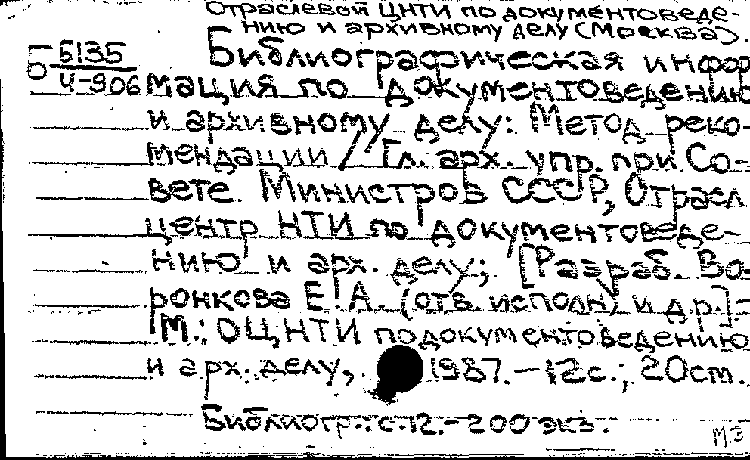 Отраслевой ЦНТИ по документоведе-
нию и архивному делу (Москва).
Б 5135
Ч-906
Библиографическая инфор
мация по документоведению
и архивному делу: Метод. реко-
мендации / Гл. арх. упр. при Со-
вете Министров СССР, Отрасл
центр НТИ по документоведе-
нию и арх. делу; [Разраб. Во-
ронкова Е.А. (отв. исполн) и др.]-
М.: ОЦНТИ по документоведению
и арх. делу, 1987. - 12с.; 20см.
Библиогр.: с.12. - 200 экз.
МЗ